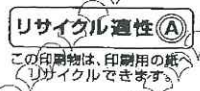 リサイクル適性Ⓐ
この印刷物は、印刷用の紙へ
リサイクルできます。